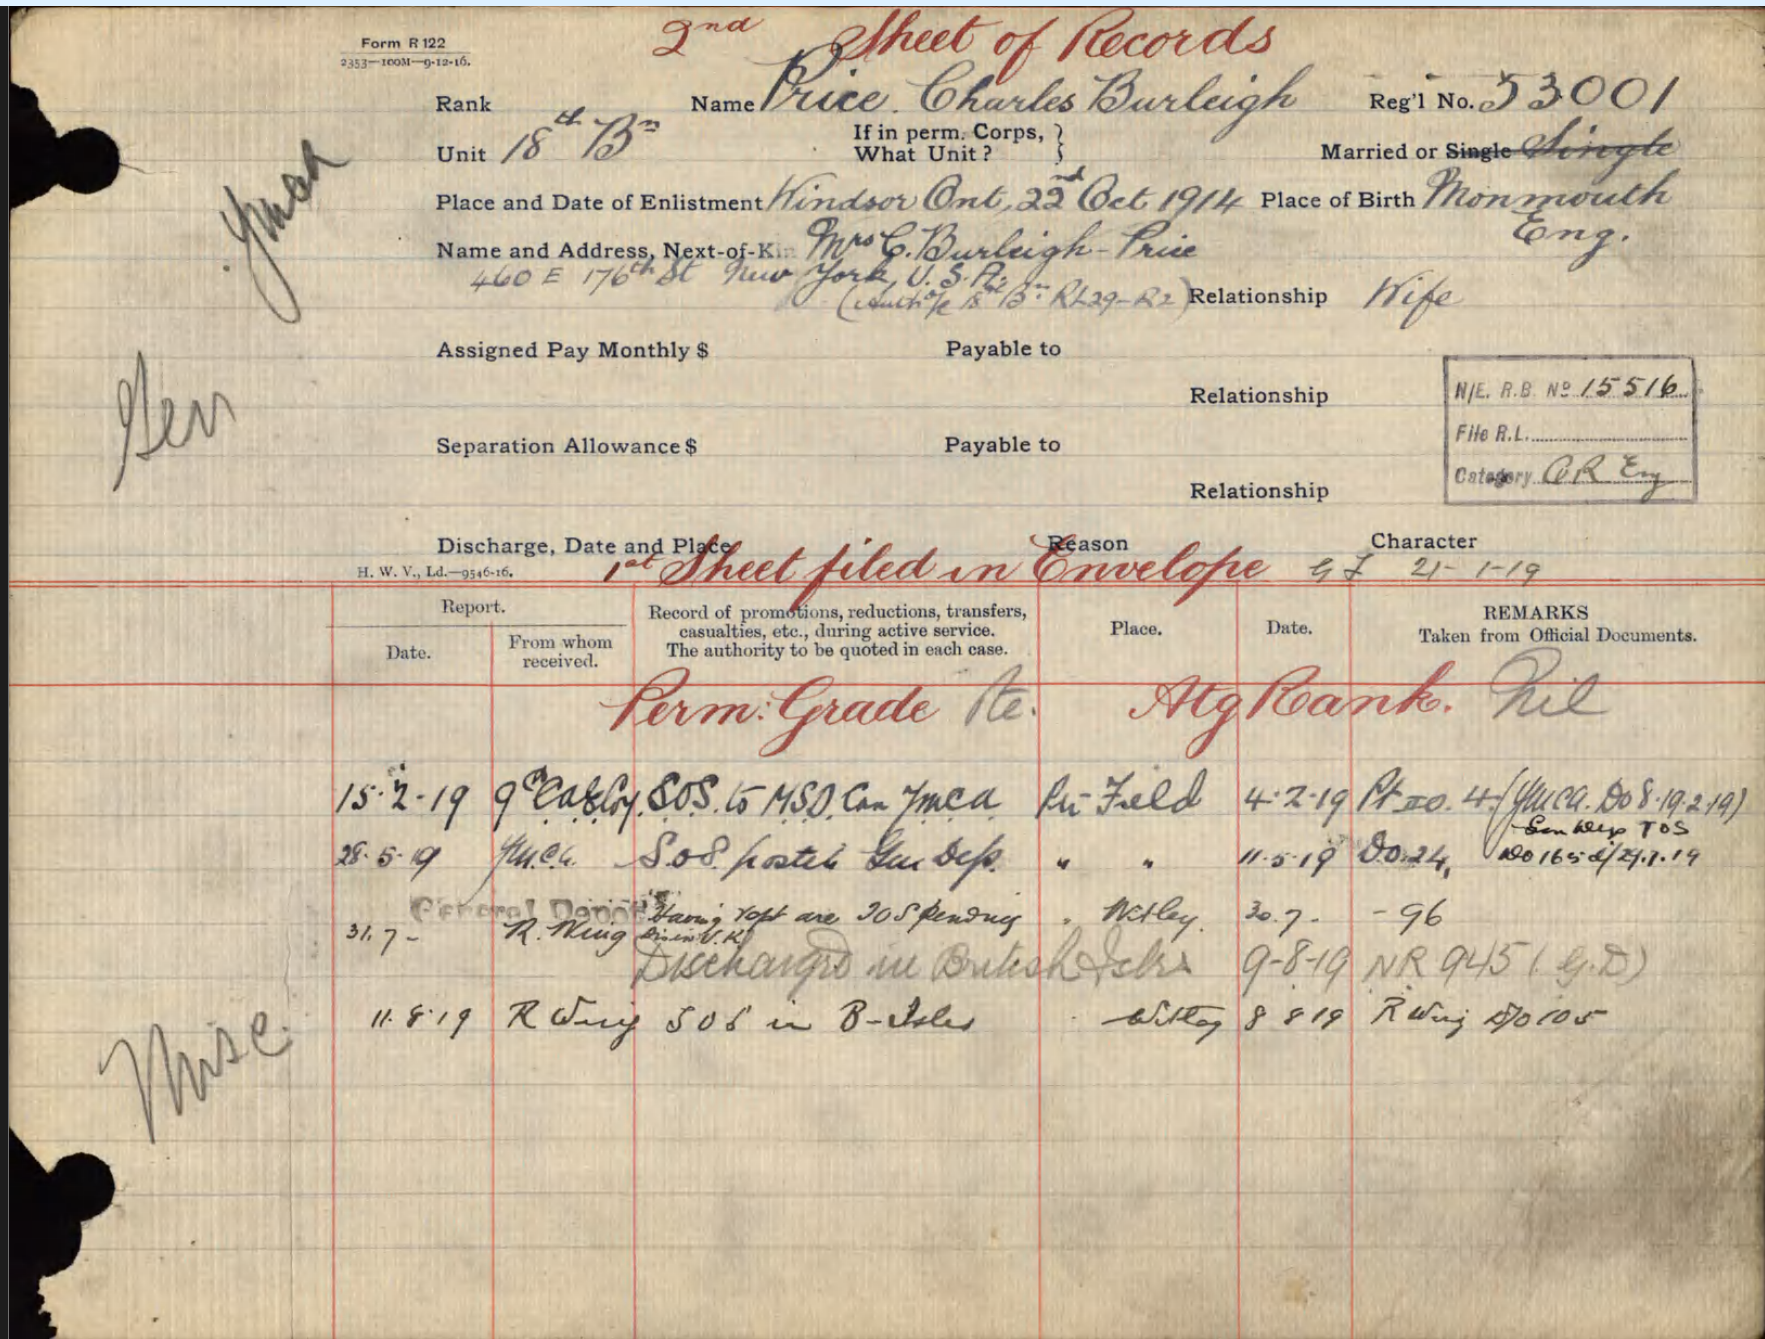 Form R 122
2353—100M—9-12-16.
2nd Sheet of Records
Rank Name Price. Charles Burleigh Reg'l No. 53001
Unit 18th Bn If in perm. Corps, What Unit? Married or Single Single
Place and Date of Enlistment Windsor Ont, 22nd Oct 1914 Place of Birth Monmouth
Eng.
Name and Address, Next-of-Kin Mrs C. Burleigh-Price
460 E 176th St New York, U.S.A.
(18th Bn RL29-R2) Relationship Wife
Assigned Pay Monthly $ Payable to
Relationship
Separation Allowance $ Payable to
Relationship
N/E. R.B. No 15516
File R.L.
Category OR Eng
Discharge, Date and Place Reason Character
H. W. V., Ld.—9546-16.
1st Sheet filed in Envelope 21-1-19
Report.
Date.
From whom received.
Record of promotions, reductions, transfers, casualties, etc., during active service. The authority to be quoted in each case.
Place.
Date.
REMARKS
Taken from Official Documents.
Perm: Grade Pte. Atg Rank. Nil
15.2.19 9th SOS. to MSO. Can Ymca Field 4.2.19 Pt II O. 4. (YMCA. DO 8.19.2.19)
Gen Dep TOS
28.5.19 Ymca. SOS. posted Gen Dep. " " 11.5.19 DO.24, DO165
General Depot
31.7- R. Wing Having are SOS pending Witley. 30.7- -96
Dis in U.K.
Discharged in British Isles 9-8-19 NR 945 (G.D)
11.8.19 R Wing SOS in B-Isles Witley 8 8 19 R Wing D/O 105
Ymca
Gen
Misc.